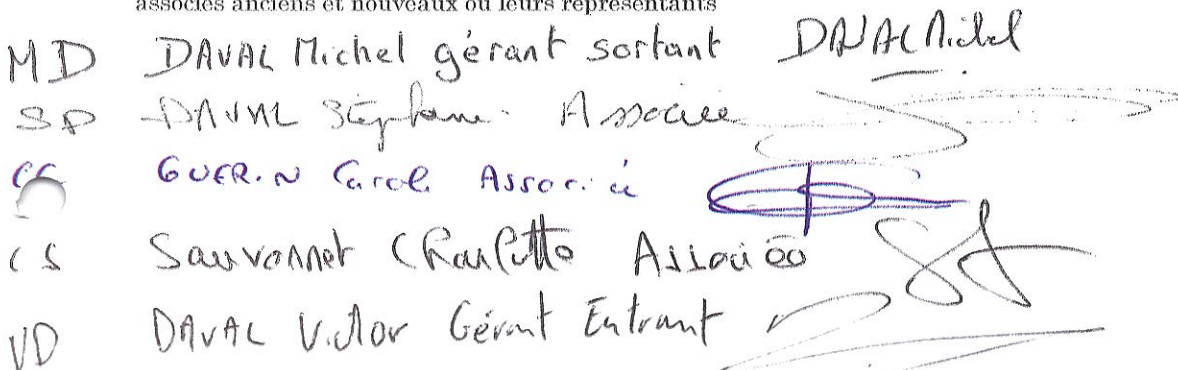 associés anciens et nouveaux ou leurs représentants
MD DAVAL Michel gérant sortant DAVAL Michel
SD DAVAL Stéphane Associé
CG GUERIN Carole Associée
CS Sauvonnet Charlotte Associée
VD DAVAL Victor Gérant Entrant